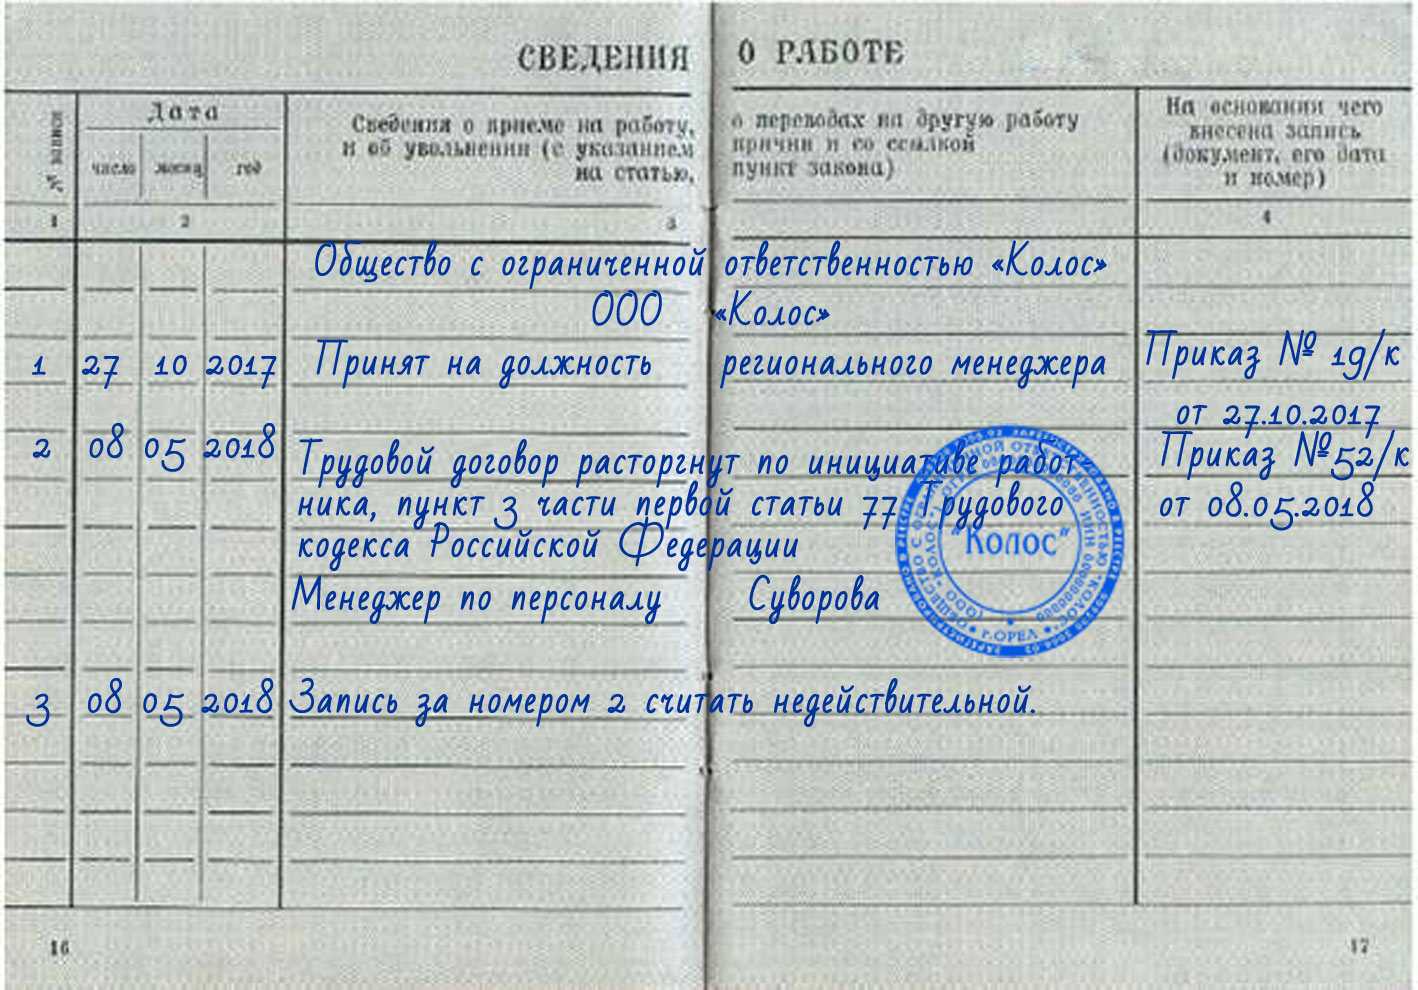 СВЕДЕНИЯ О РАБОТЕ
№ записи
Дата
число месяц год
Сведения о приеме на работу, о переводах на другую работу
и об увольнении (с указанием причин и со ссылкой
на статью, пункт закона)
На основании чего
внесена запись
(документ, его дата
и номер)
1 2 3 4
Общество с ограниченной ответственностью «Колос»
ООО «Колос»
1 27 10 2017 Принят на должность регионального менеджера Приказ № 19/к
от 27.10.2017
2 08 05 2018 Трудовой договор расторгнут по инициативе работ Приказ №52/к
ника, пункт 3 части первой статьи 77 Трудового от 08.05.2018
кодекса Российской Федерации
Менеджер по персоналу Суворова
"Колос"
г.ОРЕЛ
3 08 05 2018 Запись за номером 2 считать недействительной.
16 17